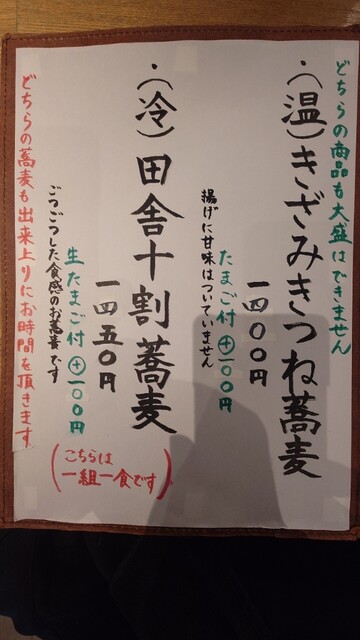 どちらの商品も大盛はできません
・(温)きざみきつね蕎麦
一四〇〇円
たまご付⊕一〇〇円
揚げに甘味はついていません
・(冷)田舎十割蕎麦
(こちらは
一組一食です)
一四五〇円
生たまご付⊕一〇〇円
ごつごつした食感のお蕎麦です
どちらの蕎麦も出来上りにお時間を頂きます